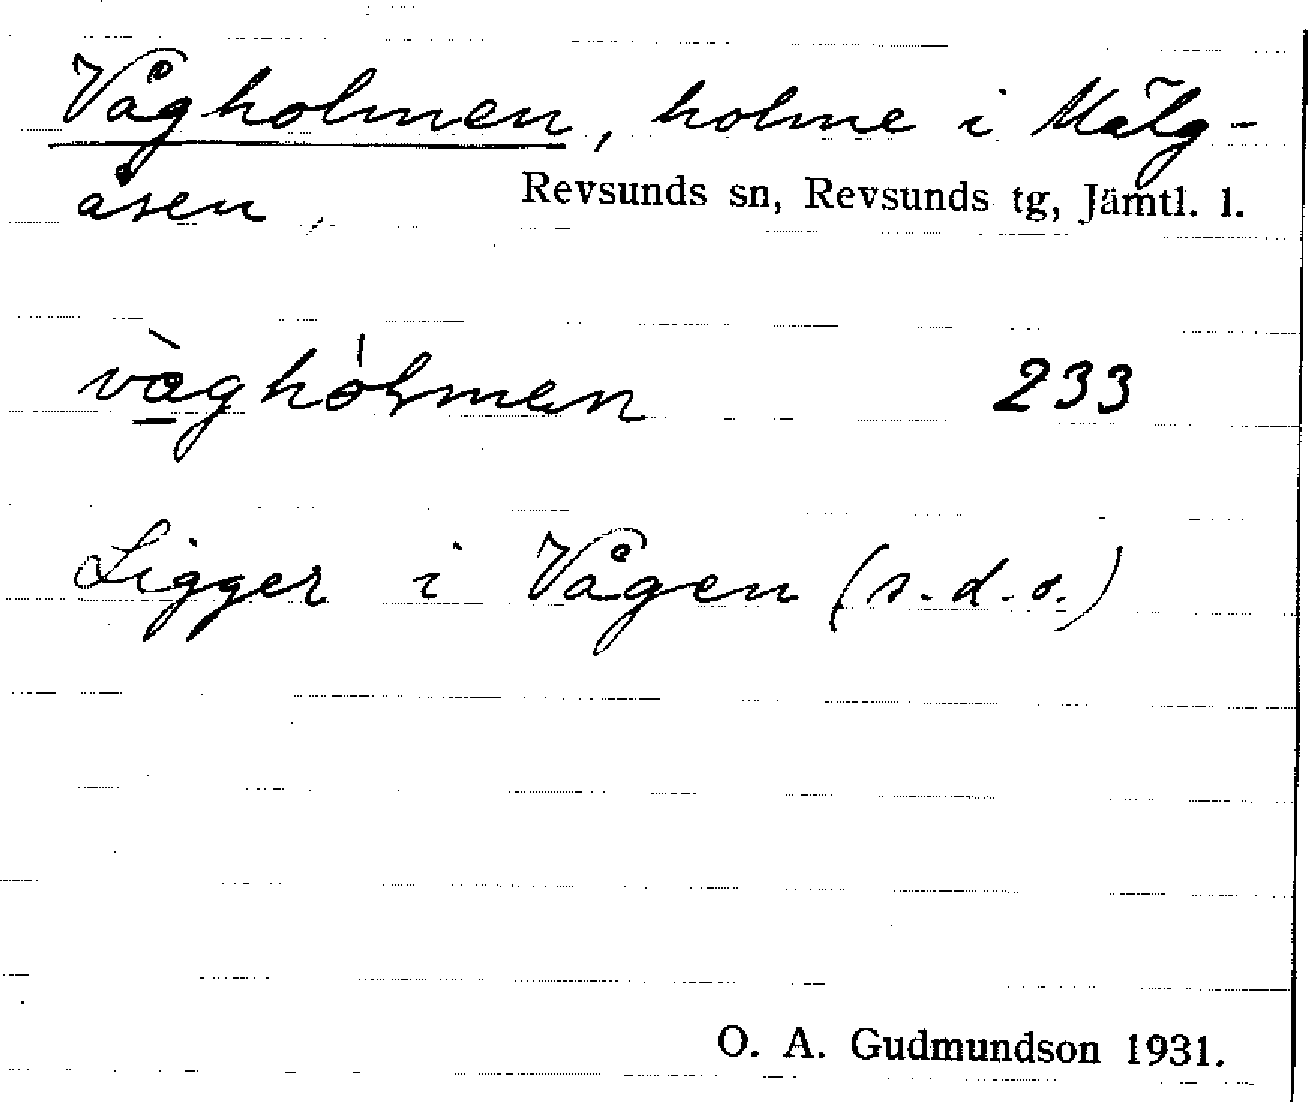 Vågholmen, holme i Mälg-
åsen.
Revsunds sn, Revsunds tg, Jämtl. l.
vàghólmen 233
Ligger i Vågen (s.d.o.)
O. A. Gudmundson 1931.